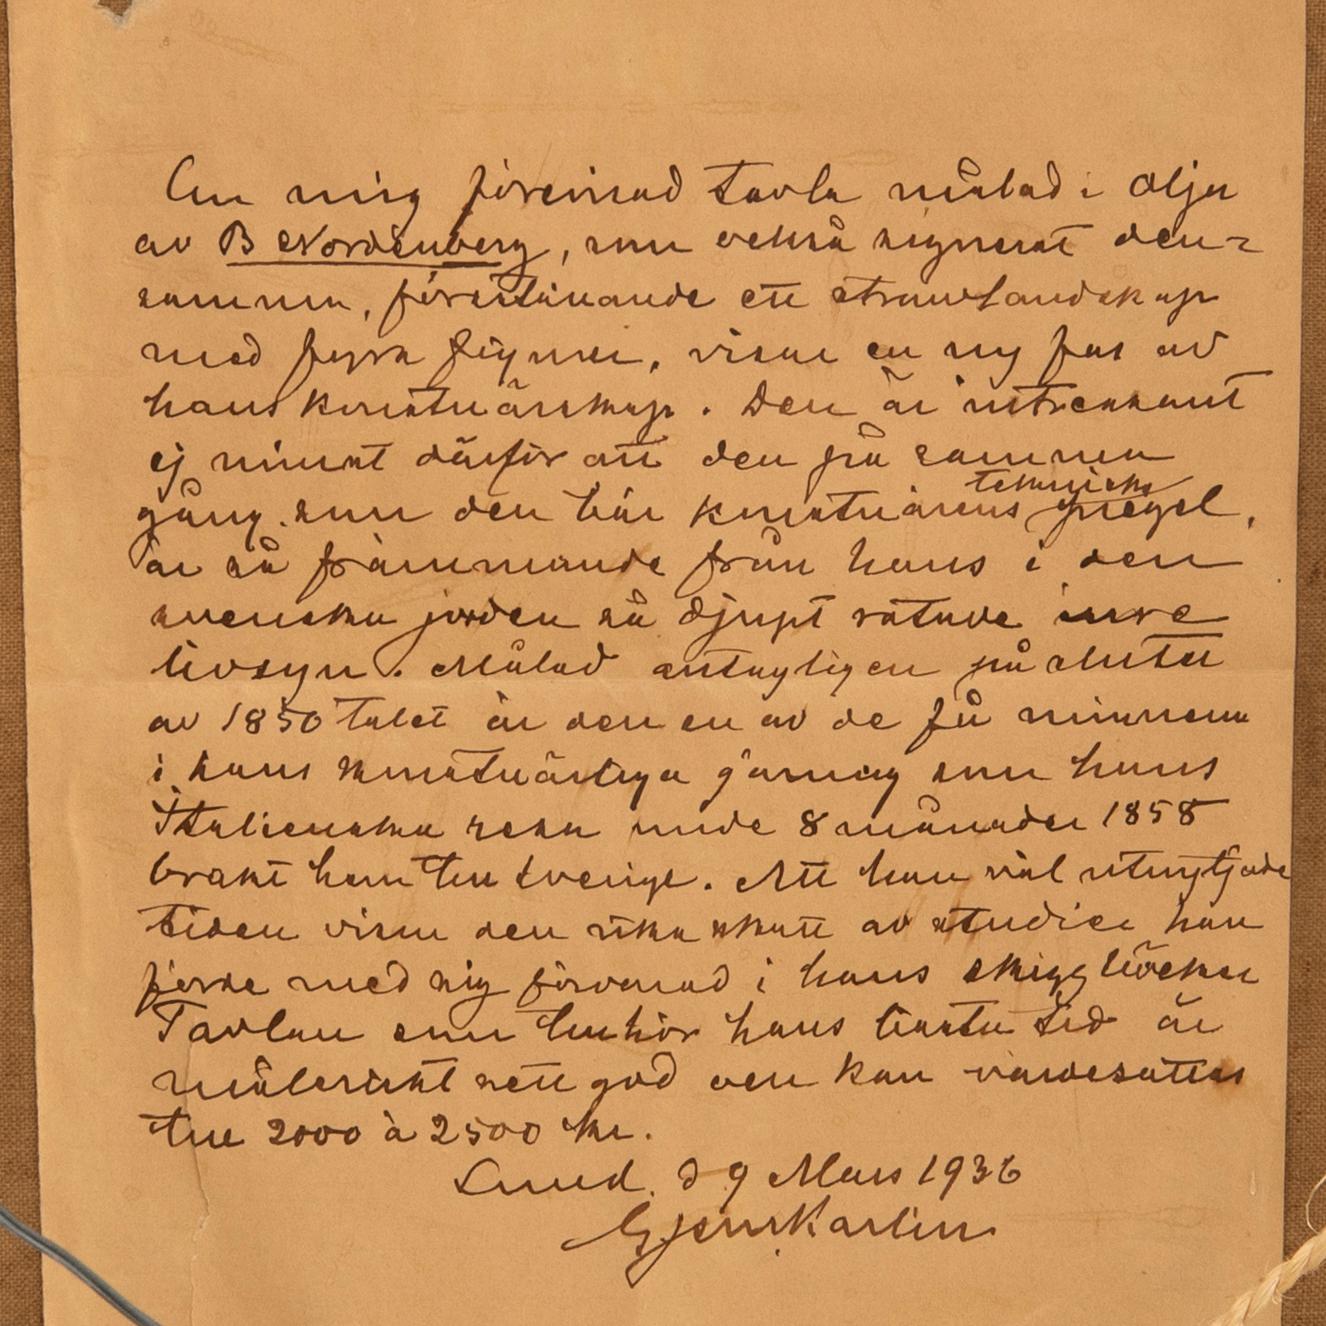 En mig förevisad Tavla målad i olja
av B Nordenberg, som också signerat den=
samma, föreställande ett strandlandskap
med fyra figurer, visar en ny fas av
hans konstnärskap. Den är intressant
ej minst därför att den på samma
gång som den bär konstnärens tekniska prägel,
är så främmande från hans i den
svenska jorden så djupt rotade inre
livssyn. Målad antagligen på slutet
av 1850 talet är den en av de få minnena
i hans konstnärliga gärning som hans
Italienska resa under 8 månader 1858
bragt hem till Sverige. Att han väl utnyttjade
tiden visar den rika skatt av studier han
förde med sig förvarad i hans skizzböcker
Tavlan som tillhör hans bästa tid är
måleriskt sett god och kan värdesättas
till 2000 à 2500 kr.
Lund. d 9 Mars 1936
G J:son Karlin